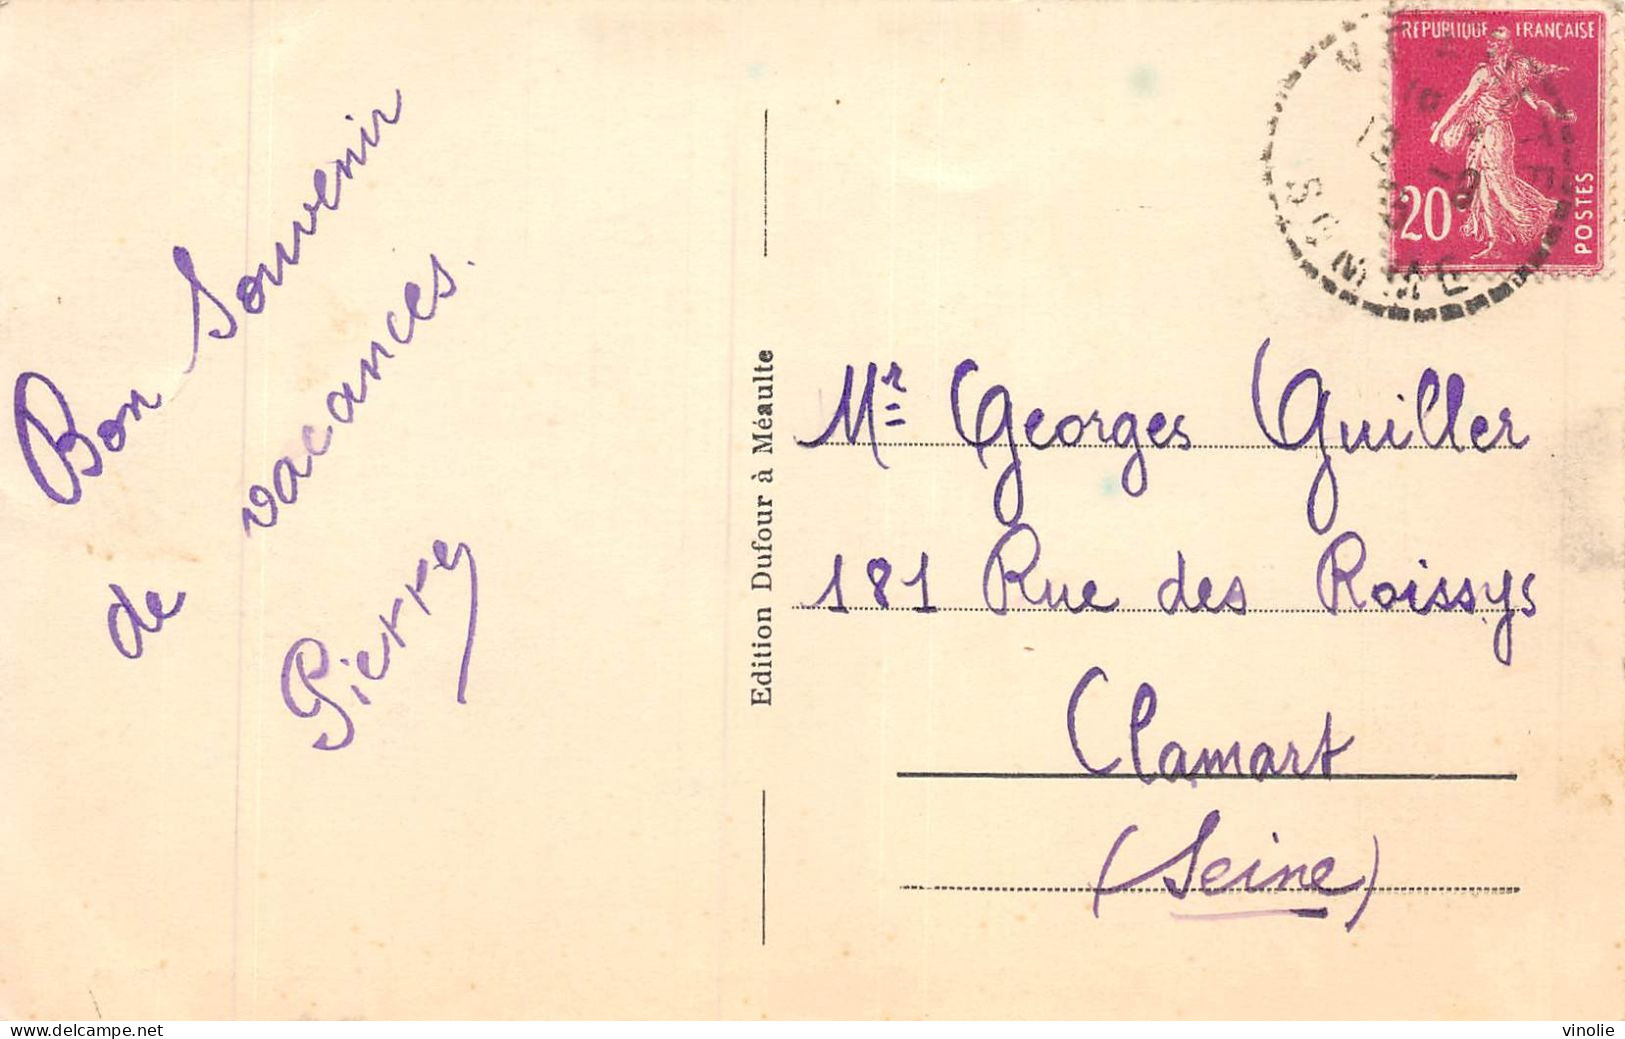 Bon Souvenir
de vacances.
Pierre
Edition Dufour à Méaulte
REPUBLIQUE FRANÇAISE
20
POSTES
SOMME
Mr Georges Guiller
181 Rue des Roissys
Clamart
(Seine)
delcampe.net
vinolie